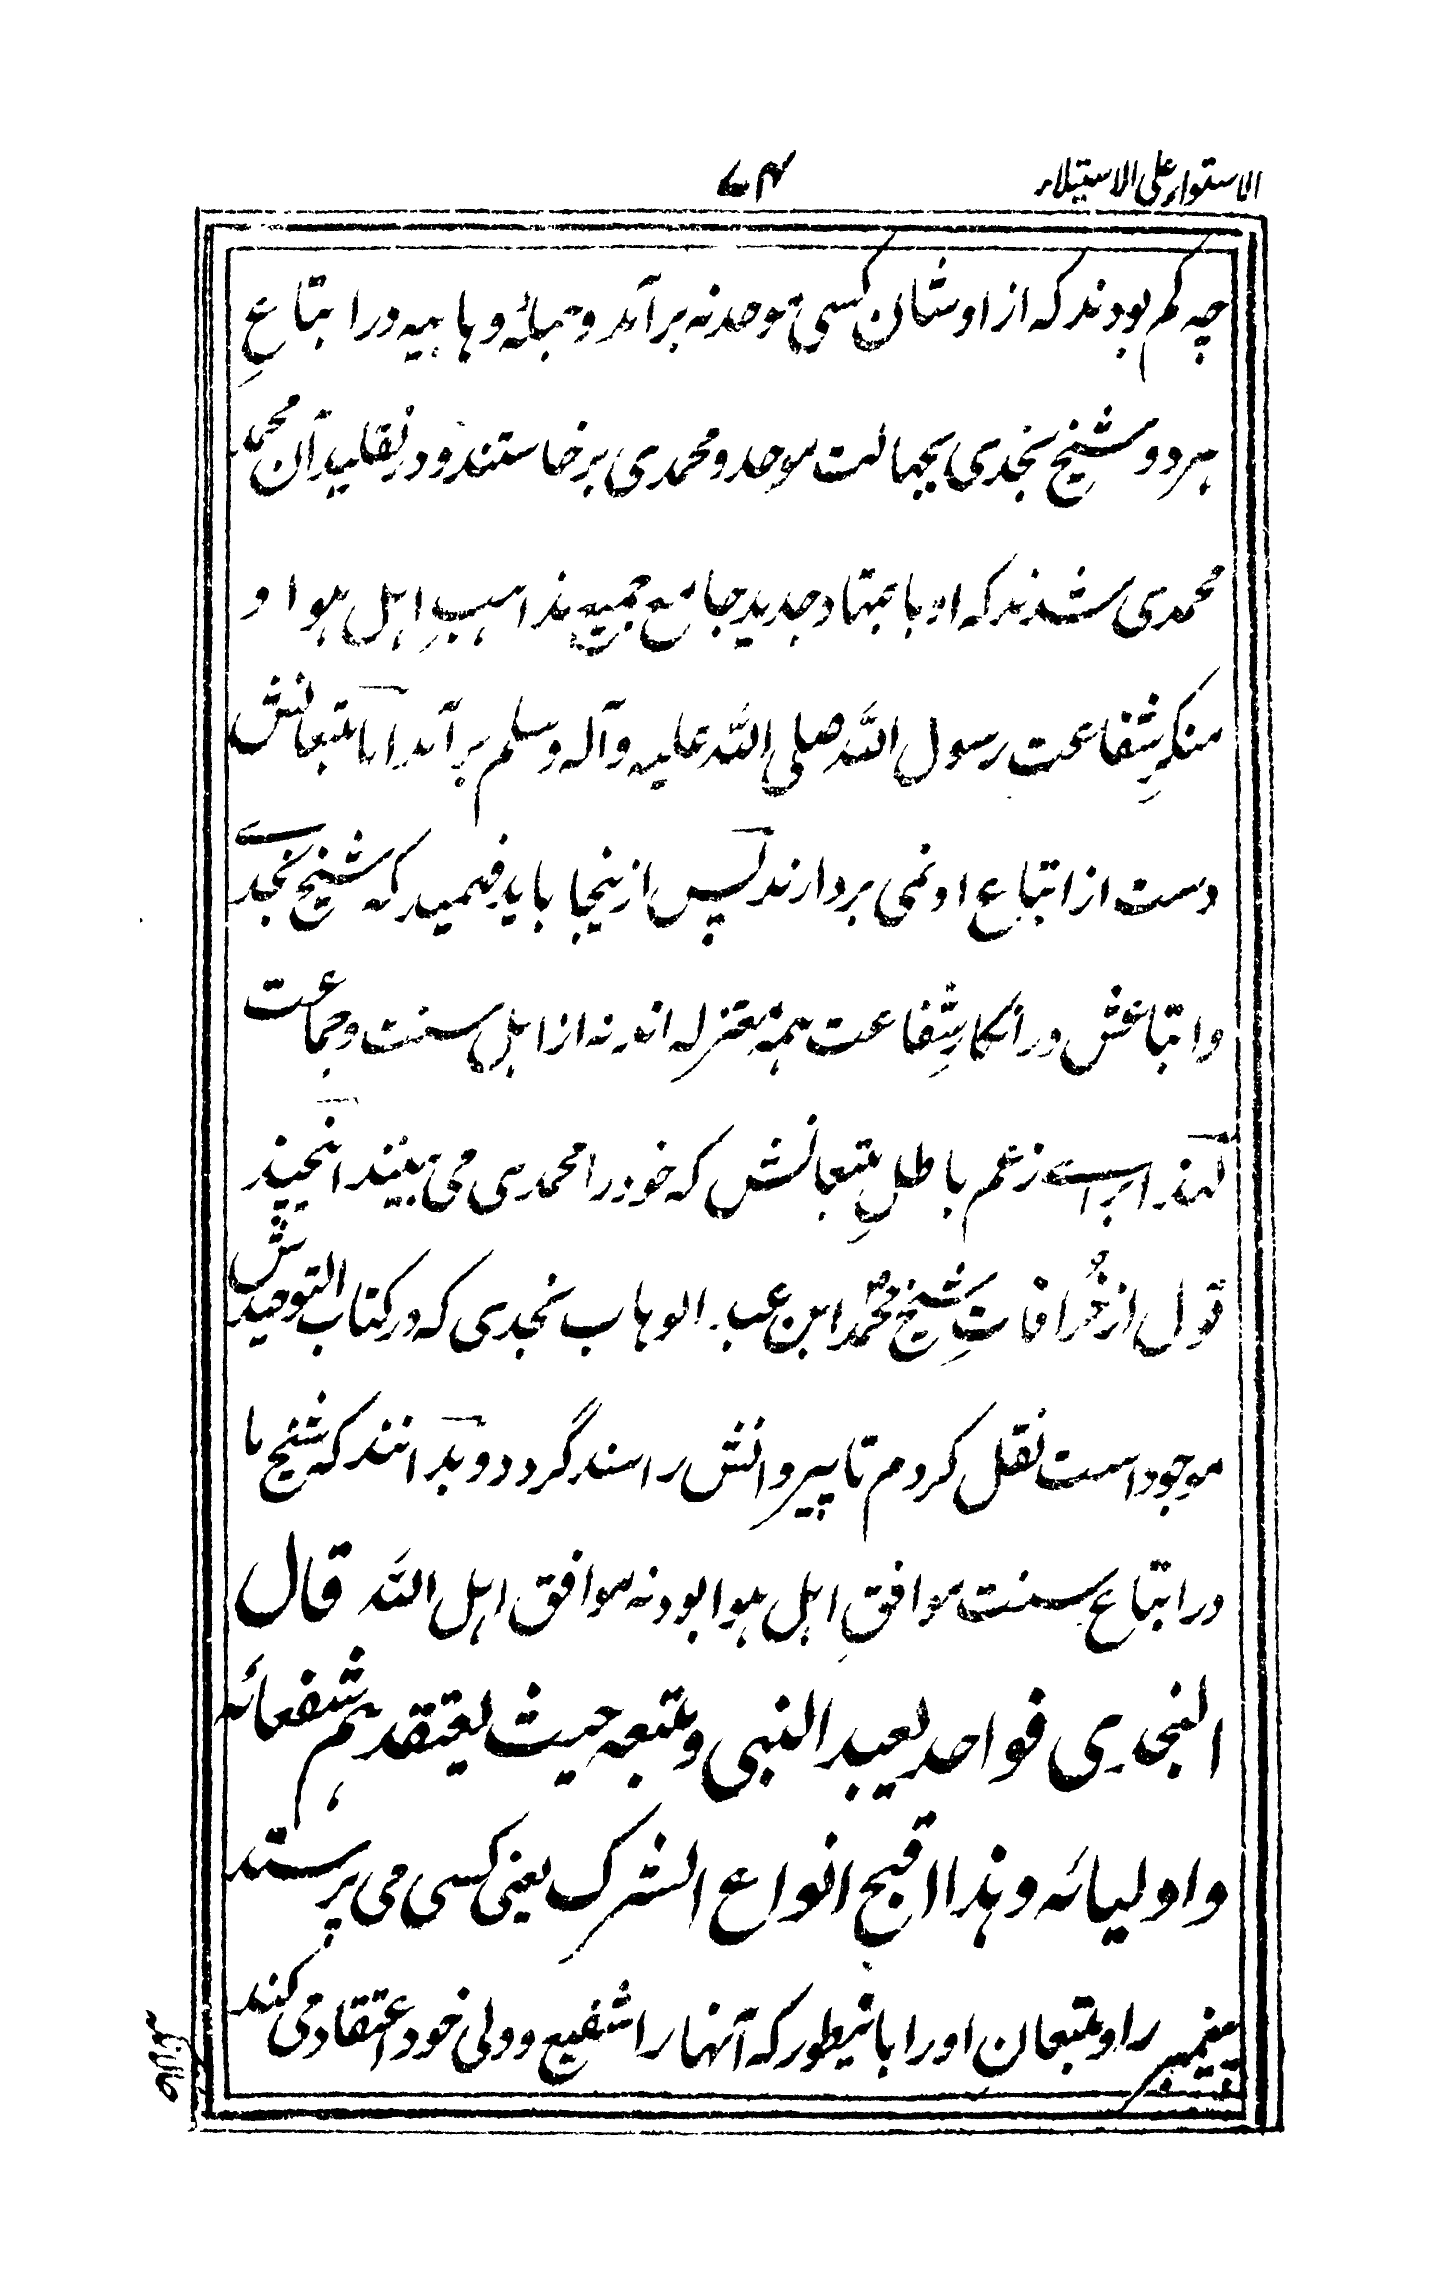 الاستواء علی الاستیلاء ۷۴
چه کم بودند که از اوشان کسی موحد نه برآمد و جمله وهابیه در اتباعِ
هر دو شیخ نجدی بجهالت موحد و محمدی برخاستند و در تقلید آن محمد
محمدی شدند که او باجتهاد جدید جامع جمیع مذاهبِ اهل هوا و
منکرِ شفاعت رسول الله صلی الله علیه وآله وسلم برآمد اما متبعانش
دست از اتباع او نمی بردارند پس ازینجا باید فهمید که شیخ نجدے
و اتباعش در انکارِ شفاعت همه معتزله اند نه از اهل سنت وجماعت
لهذا براے زعم باطلِ متبعانش که خود را محمدی می بینند اینچنین
قول از خُرافاتِ شیخ محمّد ابن عبد الوهاب نجدی که در کتاب التوحیدش
موجود است نقل کردم تا پیروانش را سند گردد و بدانند که شیخ ما
در اتباع سنت موافقِ اهل هوا بود نه موافق اهل الله قال
النجدی فواحد یعبد النبی و متبعه حیث یعتقدهم شفعائه
واولیائه وهذا اقبح انواع الشرک یعنی کسی می پرستد
پیغمبر را و متبعان او را باینطور که آنها را شفیع و ولی خود اعتقاد می کند